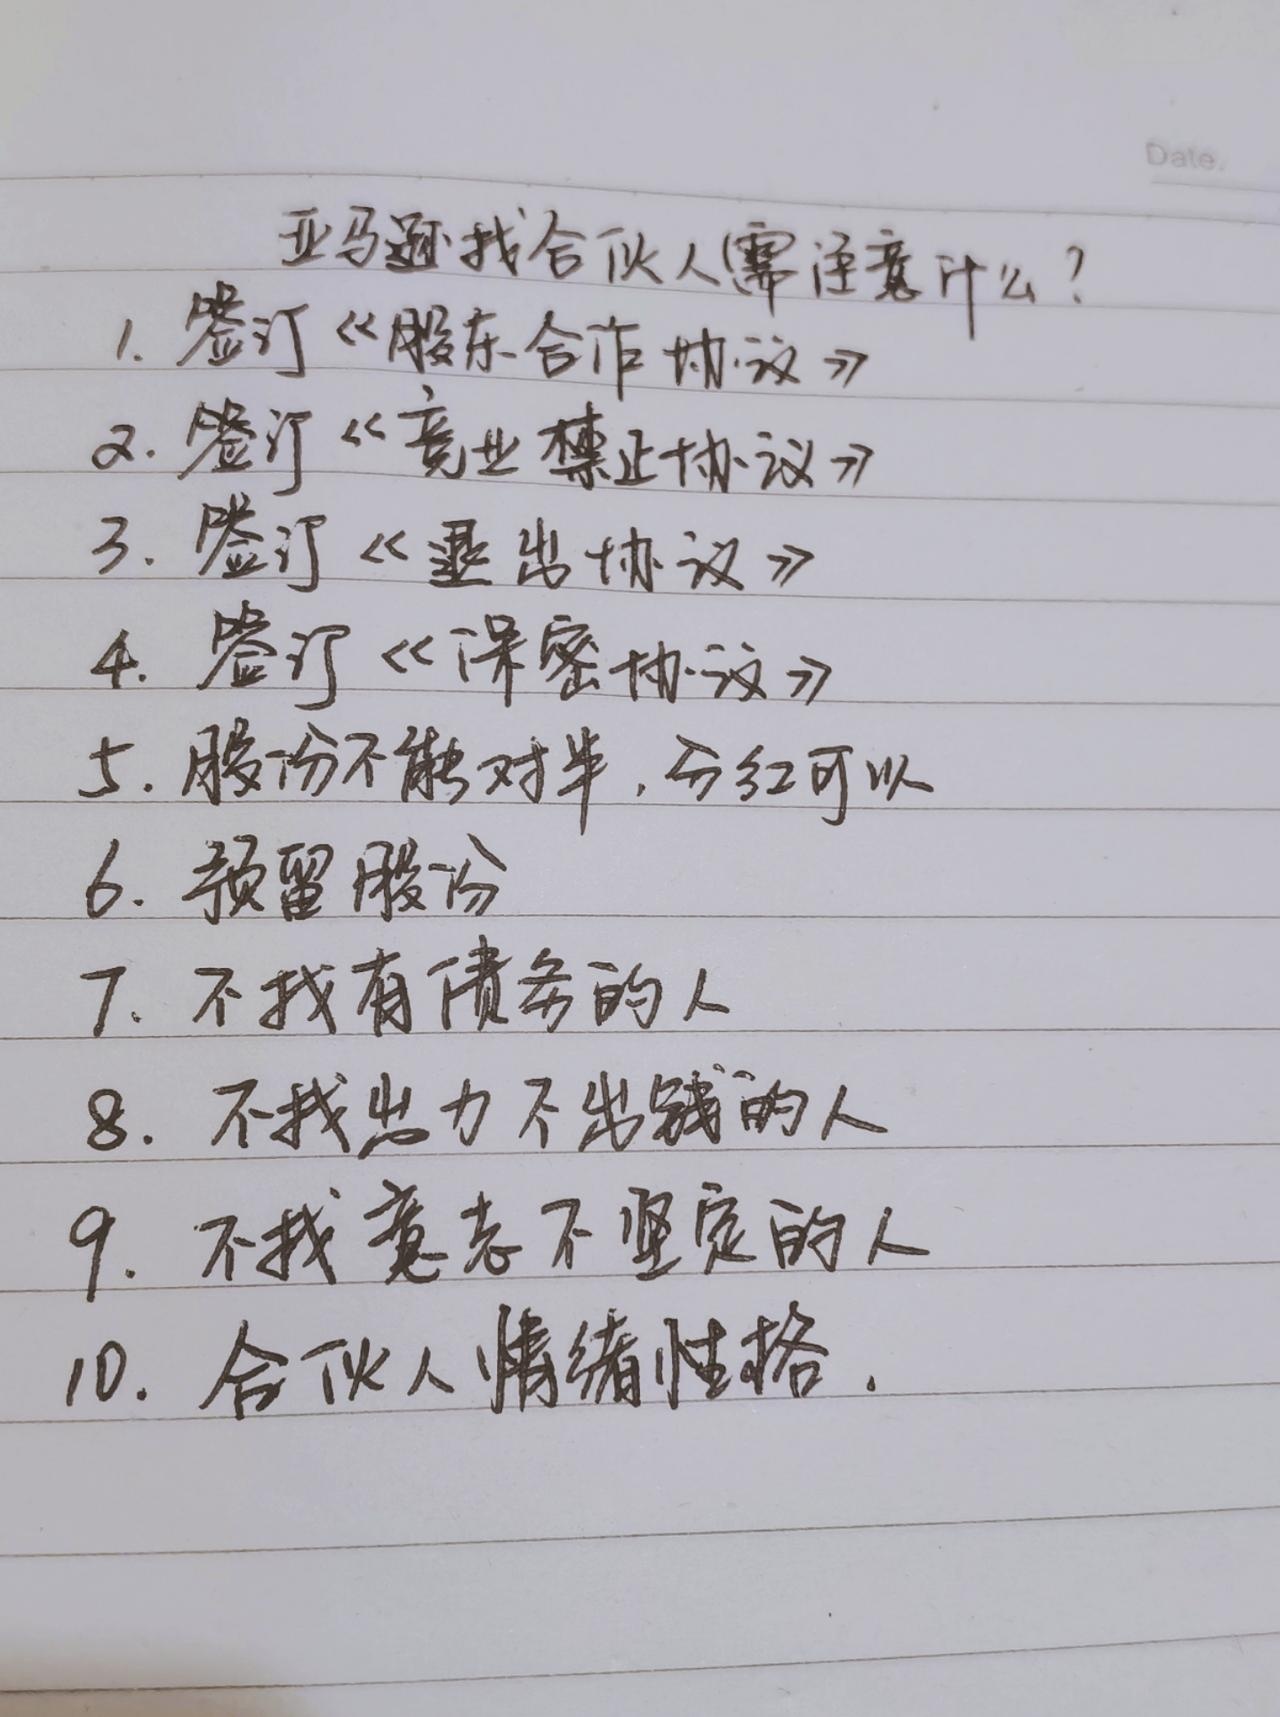 Date.
亚马逊找合伙人需注意什么?
1. 签订《股东合作协议》
2. 签订《竞业禁止协议》
3. 签订《退出协议》
4. 签订《保密协议》
5. 股份不能对半,分红可以
6. 预留股份
7. 不找有债务的人
8. 不找出力不出钱的人
9. 不找意志不坚定的人
10. 合伙人情绪性格.